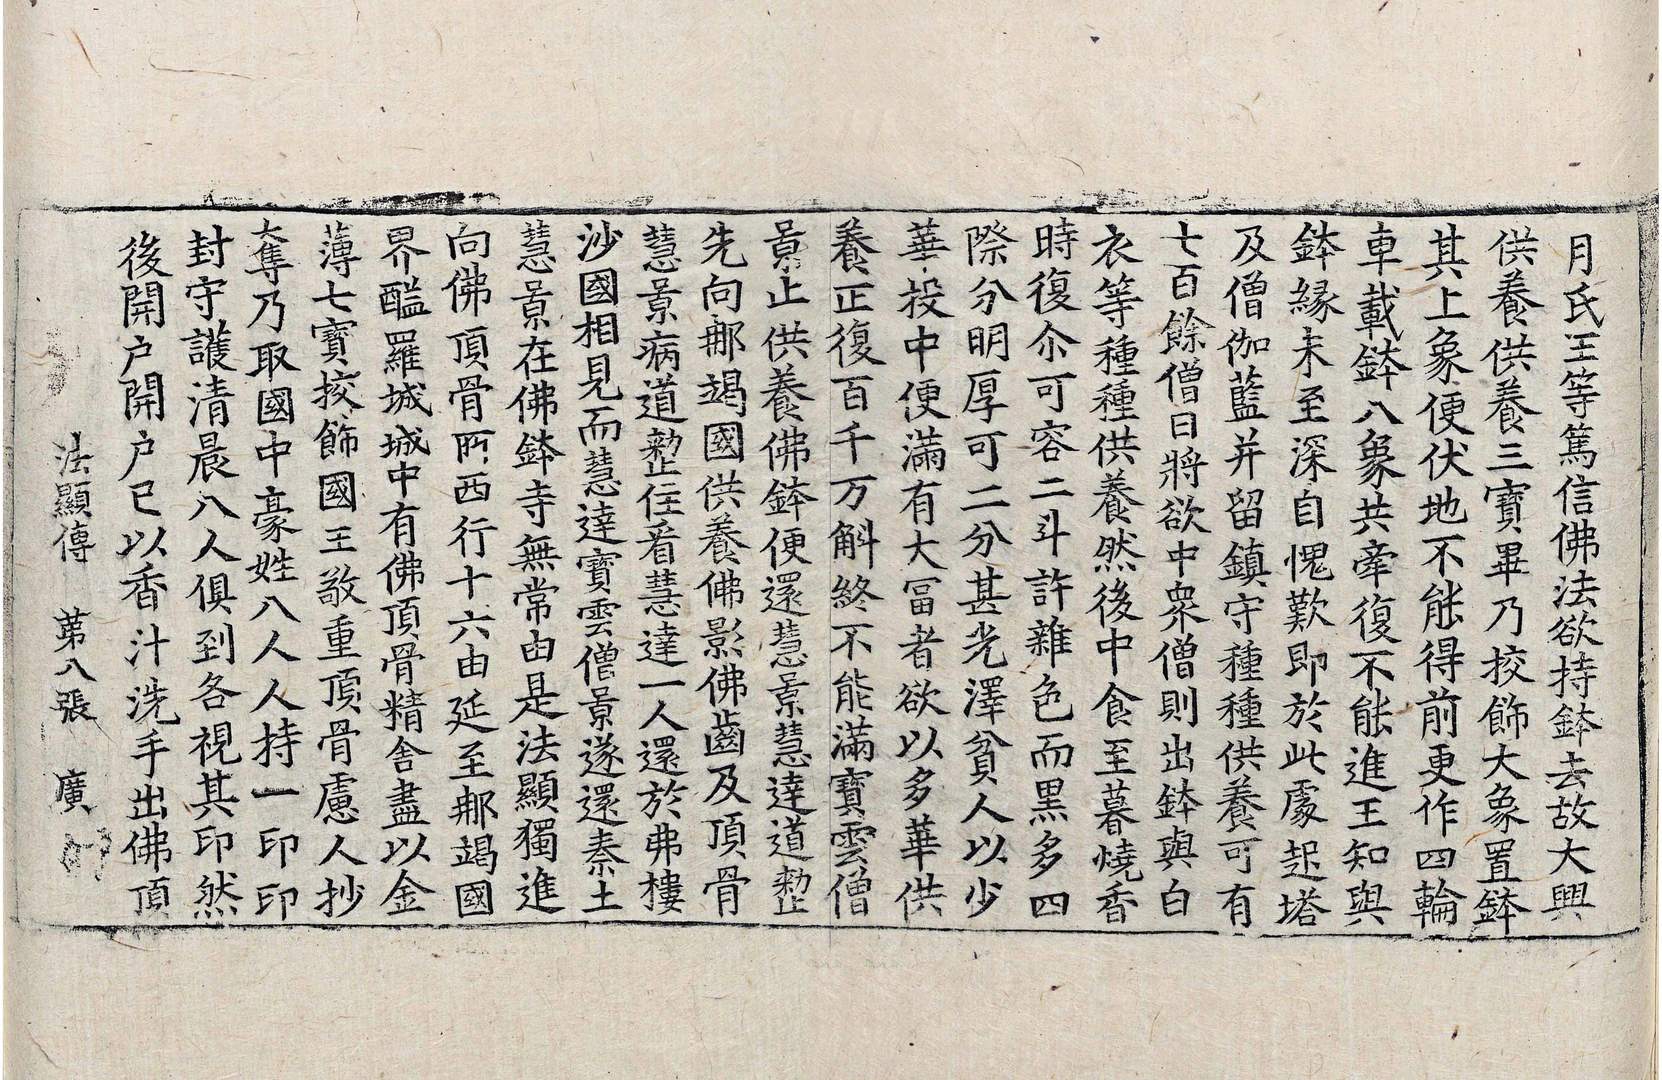 月氏王等篤信佛法欲持鉢去故大興
供養供養三寶畢乃挍飾大象置鉢
其上象便伏地不能得前更作四輪
車載鉢八象共牽復不能進王知與
鉢緣未至深自愧歎即於此處起塔
及僧伽藍并留鎮守種種供養可有
七百餘僧日將欲中衆僧則出鉢與白
衣等種種供養然後中食至暮燒香
時復尒可容二斗許雜色而黑多四
際分明厚可二分甚光澤貧人以少
華投中便滿有大冨者欲以多華供
養正復百千万斛終不能滿寶雲僧
景止供養佛鉢便還慧景慧達道整
先向那竭國供養佛影佛齒及頂骨
慧景病道整住看慧達一人還於弗樓
沙國相見而慧達寶雲僧景遂還秦土
慧景在佛鉢寺無常由是法顯獨進
向佛頂骨所西行十六由延至那竭國
界醯羅城城中有佛頂骨精舍盡以金
薄七寶挍飾國王敬重頂骨慮人抄
奪乃取國中豪姓八人人持一印印
封守護清晨八人俱到各視其印然
後開户開户已以香汁洗手出佛頂
法顯傳 第八張 廣